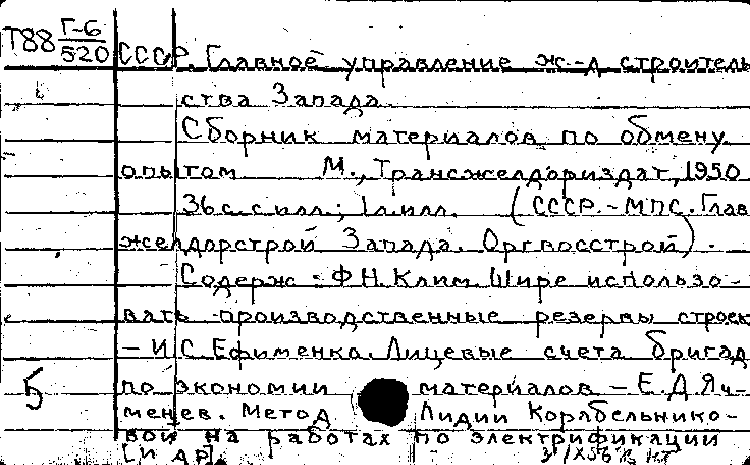 Т88 Г-6/520
СССР. Главное управление ж.-д строитель
ства Запада
Сборник материалов по обмену
опытом М., Трансжелдориздат, 1950
36 с. с илл.; 1 л. илл. (СССР.-МПС. Глав
желдорстрой Запада. Оргвосстрой).
Содерж: Ф Н. Клим. Шире использо-
вать производственные резервы строек
– И С. Ефименко. Лицевые счета бригад
5 по экономии материалов – Е. Д. Яч-
менев. Метод Лидии Корабельнико-
вой на работах по электрификации
[и др].